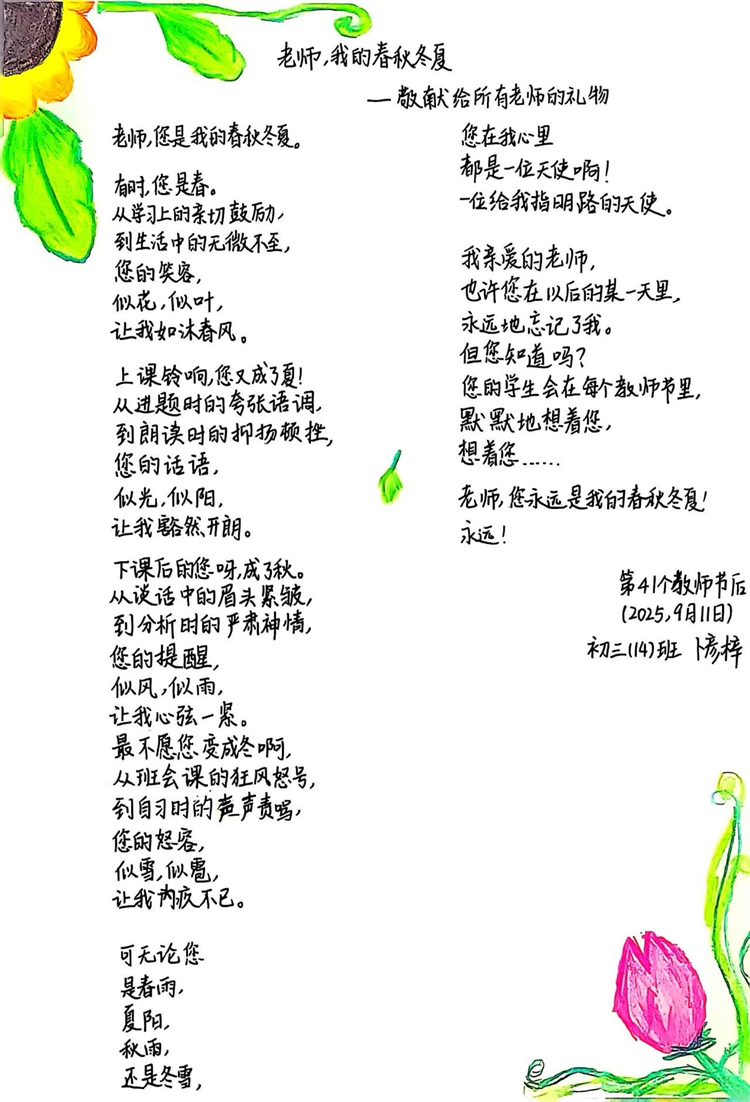 老师,我的春秋冬夏
—敬献给所有老师的礼物
老师,您是我的春秋冬夏。
有时,您是春。
从学习上的亲切鼓励,
到生活中的无微不至,
您的笑容,
似花,似叶,
让我如沐春风。
上课铃响,您又成了夏!
从进题时的夸张语调,
到朗读时的抑扬顿挫,
您的话语,
似光,似阳,
让我豁然开朗。
下课后的您呀,成了秋。
从谈话中的眉头紧皱,
到分析时的严肃神情,
您的提醒,
似风,似雨,
让我心弦一紧。
最不愿您变成冬啊,
从班会课的狂风怒号,
到自习时的声声责骂,
您的怒容,
似雪,似雹,
让我内疚不已。
可无论您
是春雨,
夏阳,
秋雨,
还是冬雪,
您在我心里
都是一位天使啊!
一位给我指明路的天使。
我亲爱的老师,
也许您在以后的某一天里,
永远地忘记了我。
但您知道吗?
您的学生会在每个教师节里,
默默地想着您,
想着您……
老师,您永远是我的春秋冬夏!
永远!
第41个教师节后
(2025,9月11日)
初三(14)班 卜彦梓